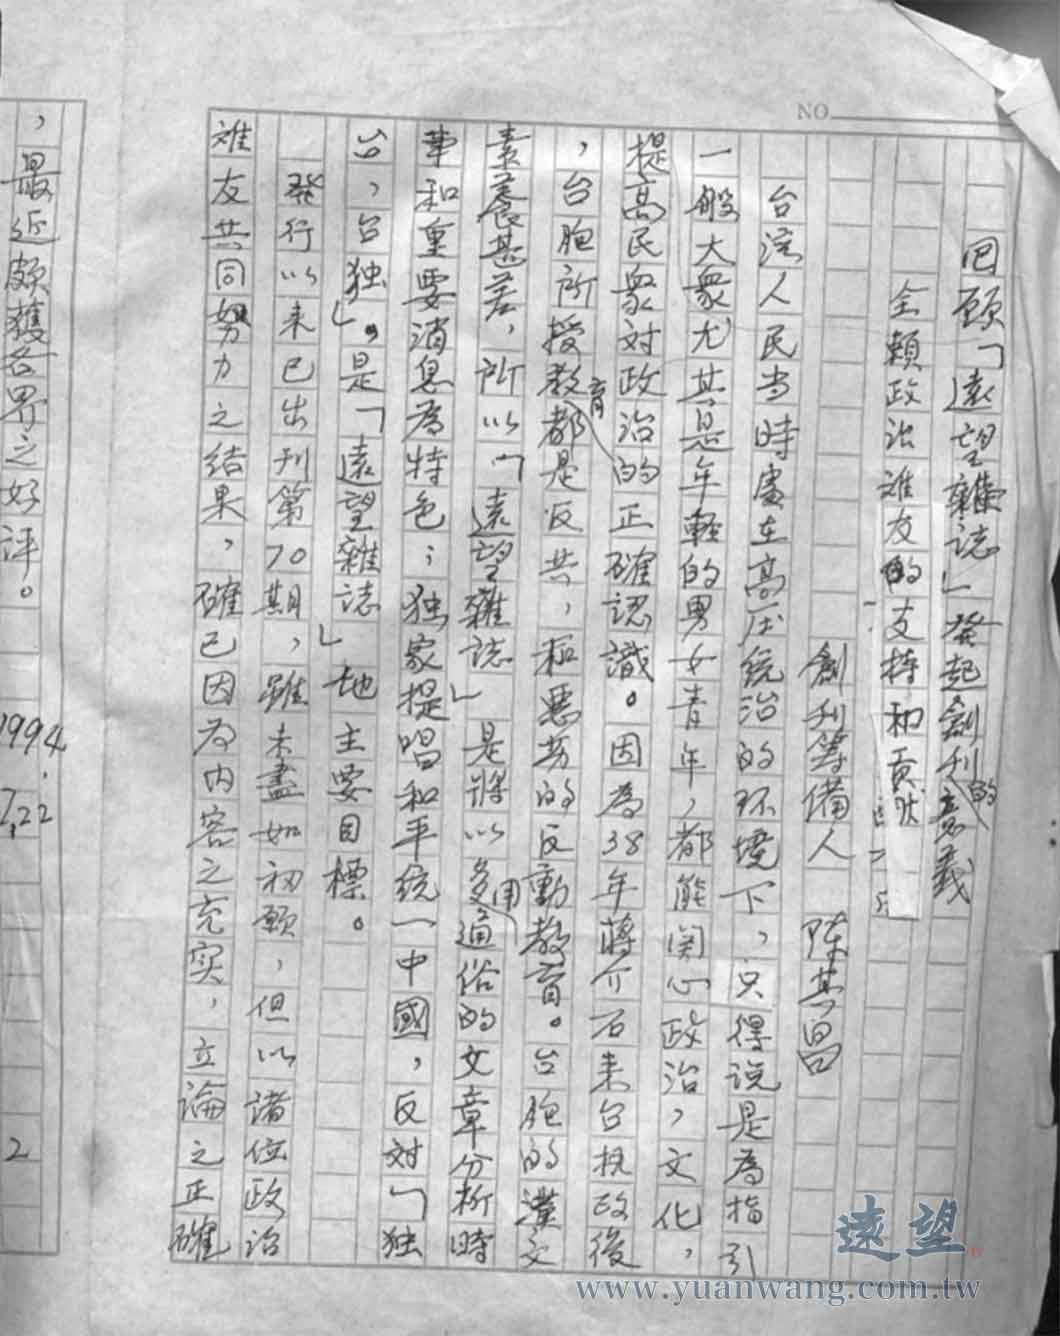 NO.
回顧「遠望雜誌」發起創刊的意義
全賴政治难友的支持和貢献
創刊筹備人 陈其昌
台湾人民当時處在高压统治的环境下，只得说是為指引
一般大衆尤其是年輕的男女青年，都能関心政治，文化，
提高民衆対政治的正確認識。因為38年蔣介石来台执政後
，台胞所授教育都是反共，和恶劣的反動教育。台胞的漢文
素養甚差，所以「遠望雜誌」是將以多用通俗的文章分析時
事和重要消息為特色；独家提唱和平统一中國，反対「独
台，台独」。是「遠望雜誌」地主要目標。
發行以来已出刊第70期，雖未盡如初願，但以諸位政治
难友共同努力之结果，確已因为内容之充实，立論之正確
，最近頗獲各界之好评。
1994.
7.22
2
遠望
www.yuanwang.com.tw